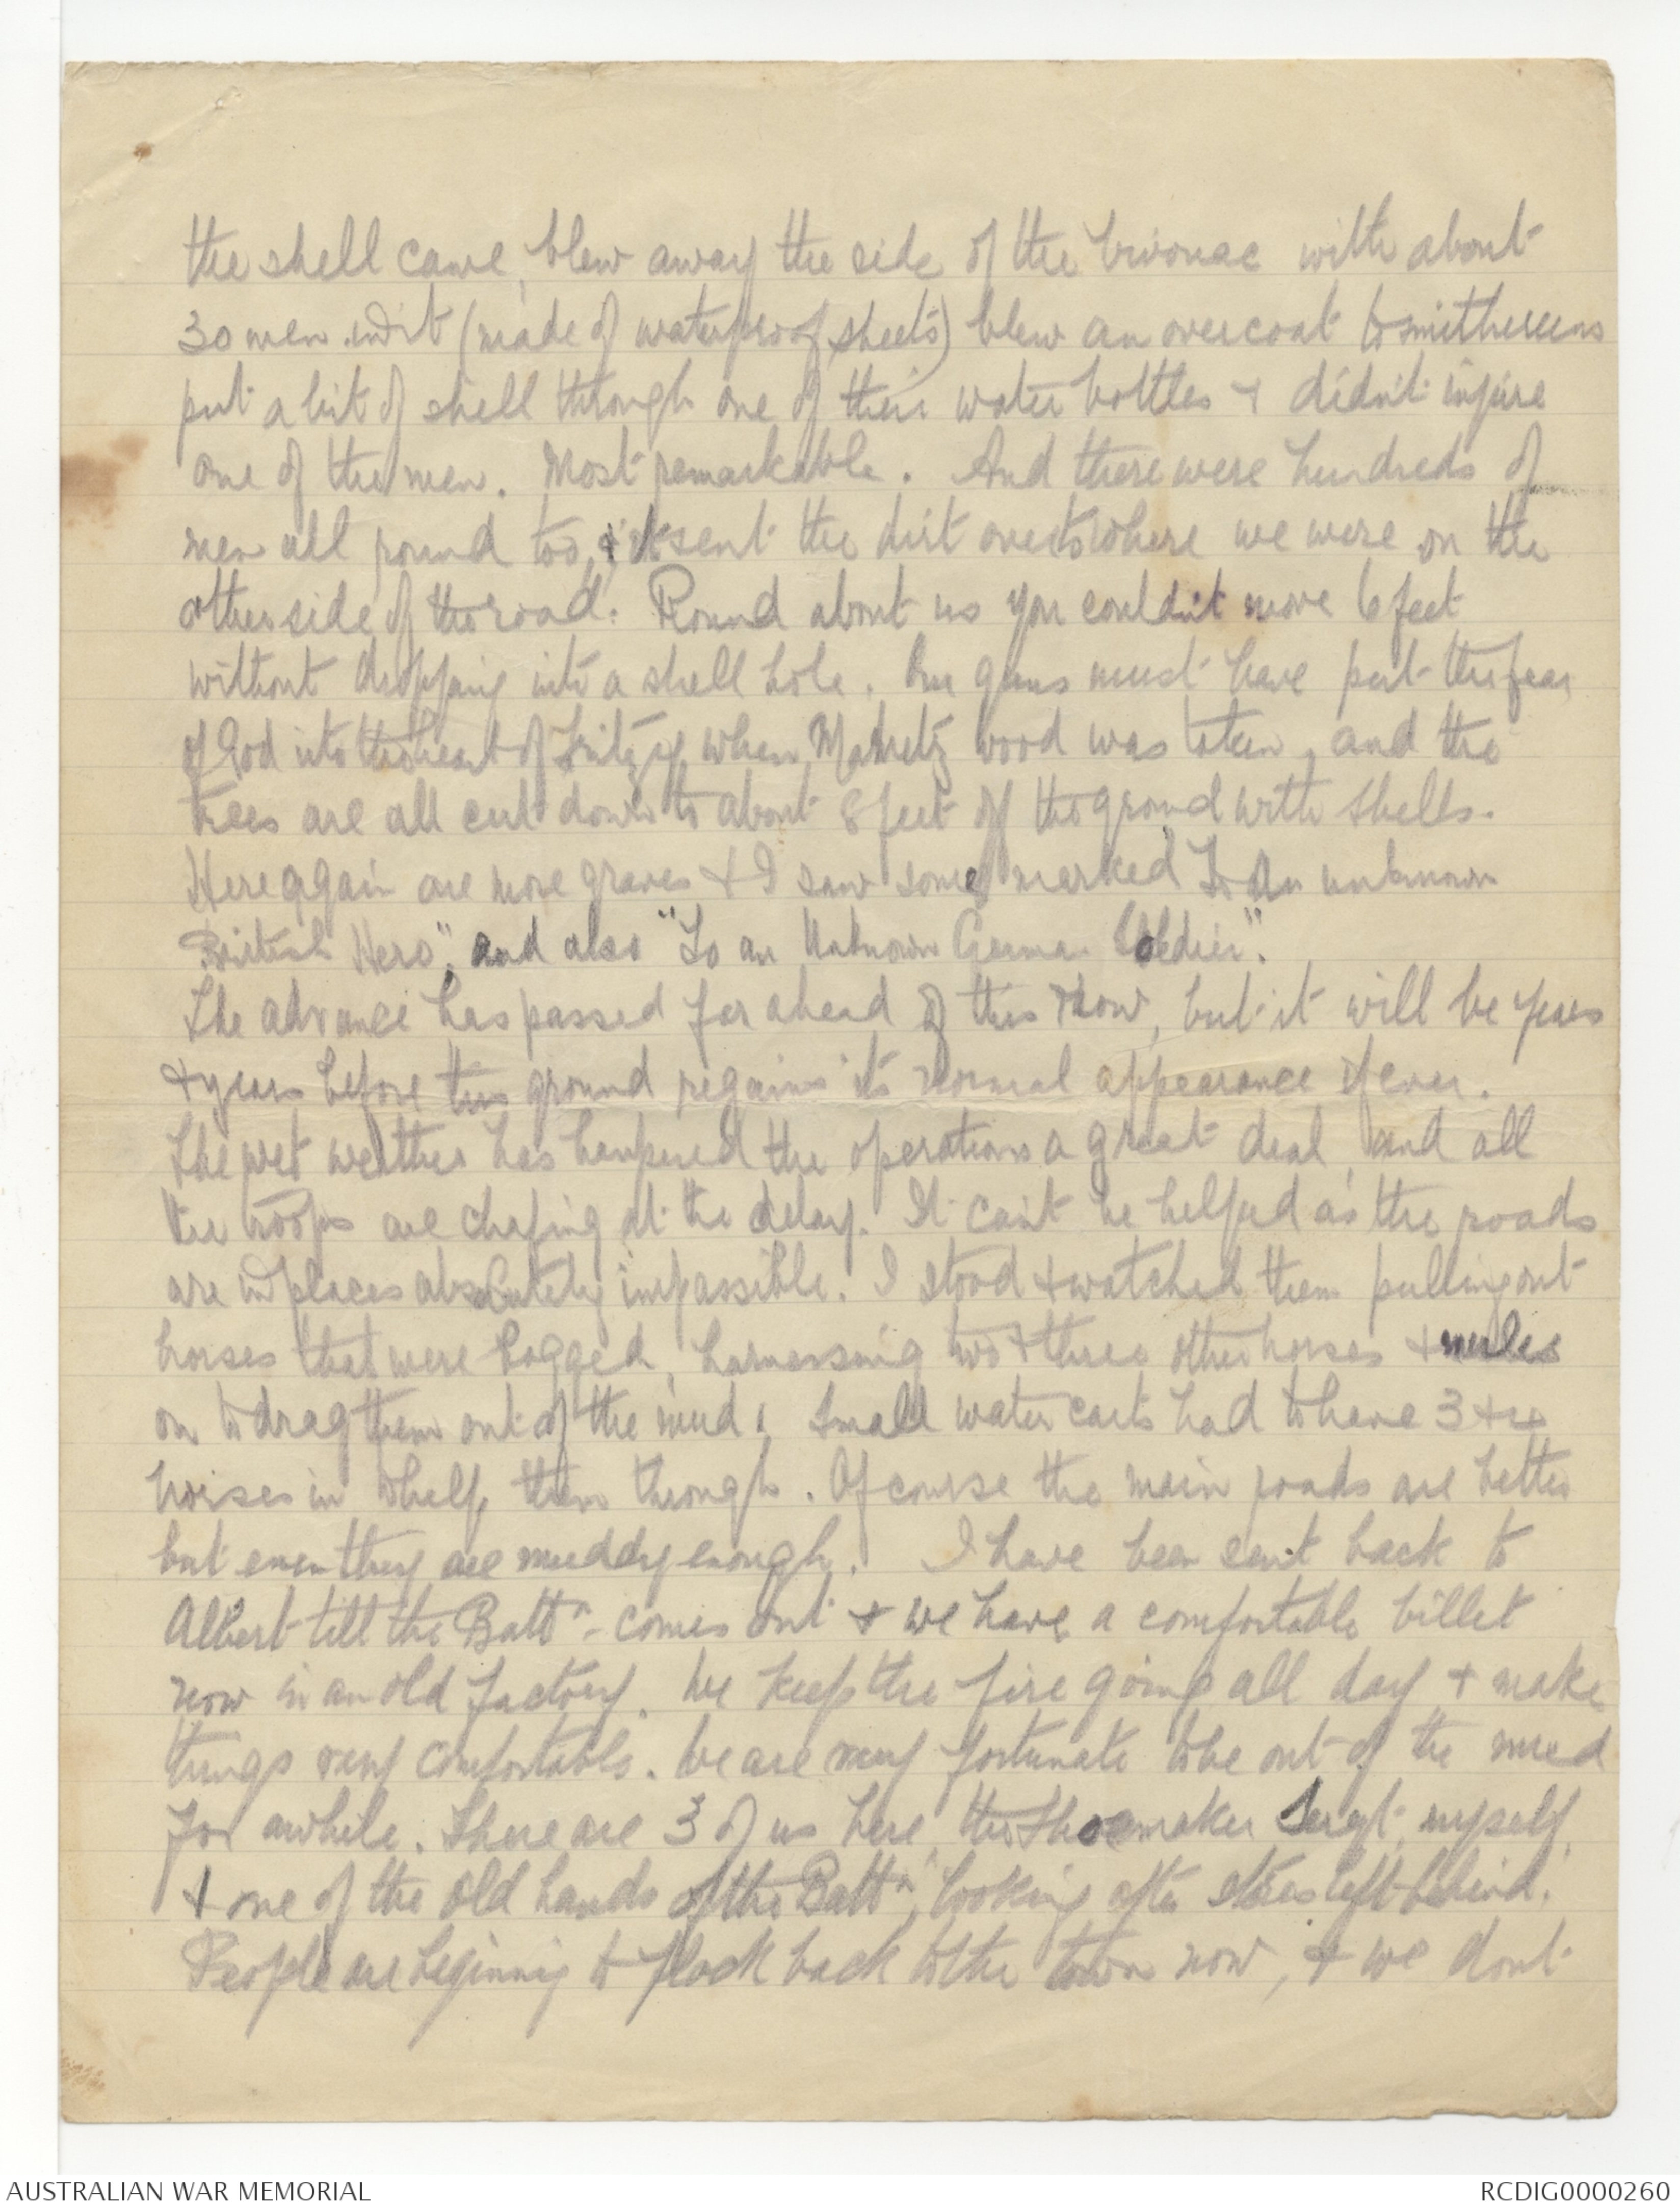 the shell came, blew away the side of the bivouac with about
30 men in it (made of waterproof sheets) blew an overcoat to smithereens
put a bit of shell through one of their water bottles & didn't injure
one of the men. Most remarkable. And there were hundreds of
men all round too, & it sent the dirt over to where we were on the
other side of the road. Round about us you couldn't move 6 feet
without dropping into a shell hole. Our guns must have put the fear
of God into the heart of Fritzy when Mametz wood was taken, and the
trees are all cut down to about 8 feet of the ground with shells.
Here again are more graves & I saw some marked To An unknown
British Hero", and also "To an Unknown German Soldier".
The advance has passed far ahead of this now, but it will be years
& years before this ground regains its normal appearance if ever.
The wet weather has hampered the operations a great deal, and all
the troops are chafing at the delay. It can't be helped as the roads
are in places absolutely impassible. I stood & watched them pulling out
horses that were bogged, harnessing two & three other horses & mules
on to drag them out of the mud. Small water carts had to have 3 & 4
horses in to help them through. Of course the main roads are better
but even they are muddy enough. I have been sent back to
Albert till the Battn - comes out & we have a comfortable billet
now in an old factory. We keep the fire going all day & make
things very comfortable. We are very fortunate to be out of the mud
for awhile. There are 3 of us here, the Shoemaker Sergt, myself,
& one of the old hands of the Battn, looking after stores left behind.
People are beginning to flock back to the town now, & we dont
AUSTRALIAN WAR MEMORIAL
RCDIG0000260